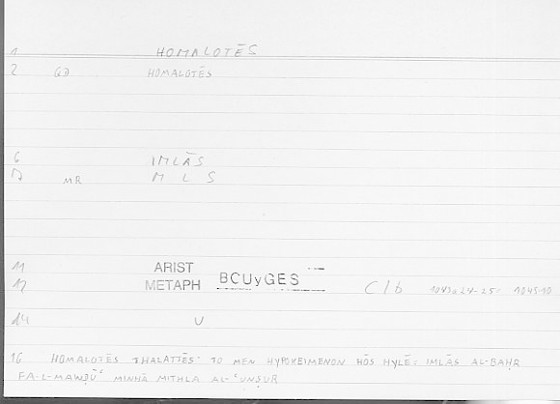 1 HOMALOTĒS
2 GD HOMALOTĒS
6 IMLĀS
7 MR M L S
11 ARIST
12 METAPH BCUyGES C/b 1043a24-25: 1045.10
14 U
16 HOMALOTĒS THALATTĒS: TO MEN HYPOKEIMENON HŌS HYLĒ: IMLĀS AL-BAḤR
FA-L-MAWḌŪʿ MINHĀ MITHLA AL-ʿUNṢUR